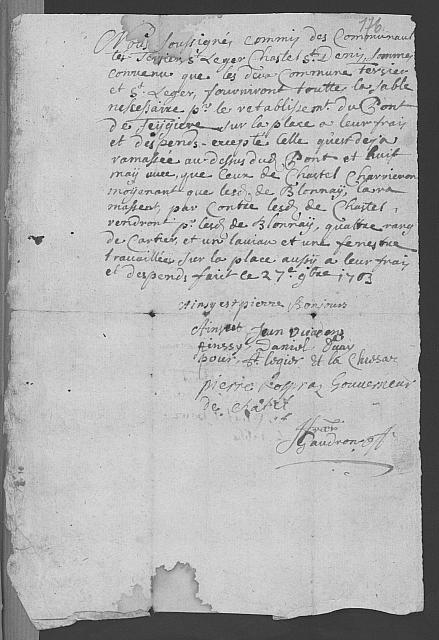 176
Nous soussignés commis des Communaut
tés St Leger Chastel St Denis sommes
convenu que les deux Commune
et St Leger, fourniront toutte la sable
nessessaire pr le retablissemt du Pont
de sur la place a leur frais
et despends excepte celle quest deja
ramassée au dessus dud Pont et huit
que Ceux de Chastel Charrieron
moyenant que lesds de Blonnaÿ, la ra
massent, par Contre lesds de Chastel
rendront pr lesds de Blonnaÿ, quattre rang
de Cartier, et un laviau et une fenestre
travaillées sur la place aussÿ a leur frais
et despends fait le 27e 9bre 1703
Ainsy est pierre Bonjour
Ainsy est Jean
Ainssy Daniel
pour St legier et la Chiesaz
pierre Gouverneur
de Chatel